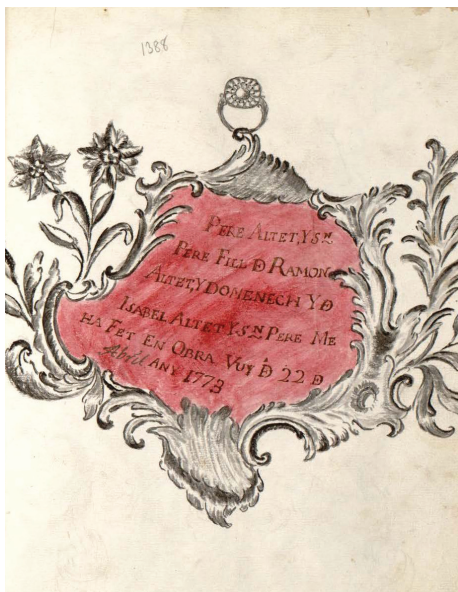 1388
PERE ALTET, Y Sn.
PERE FILL Đ RAMON
ALTET, Y DOMENECH Y Đ
ISABEL ALTET Y Sn PERE ME
HA FET EN OBRA VUY Đ 22 Đ
Abril ANY 1773